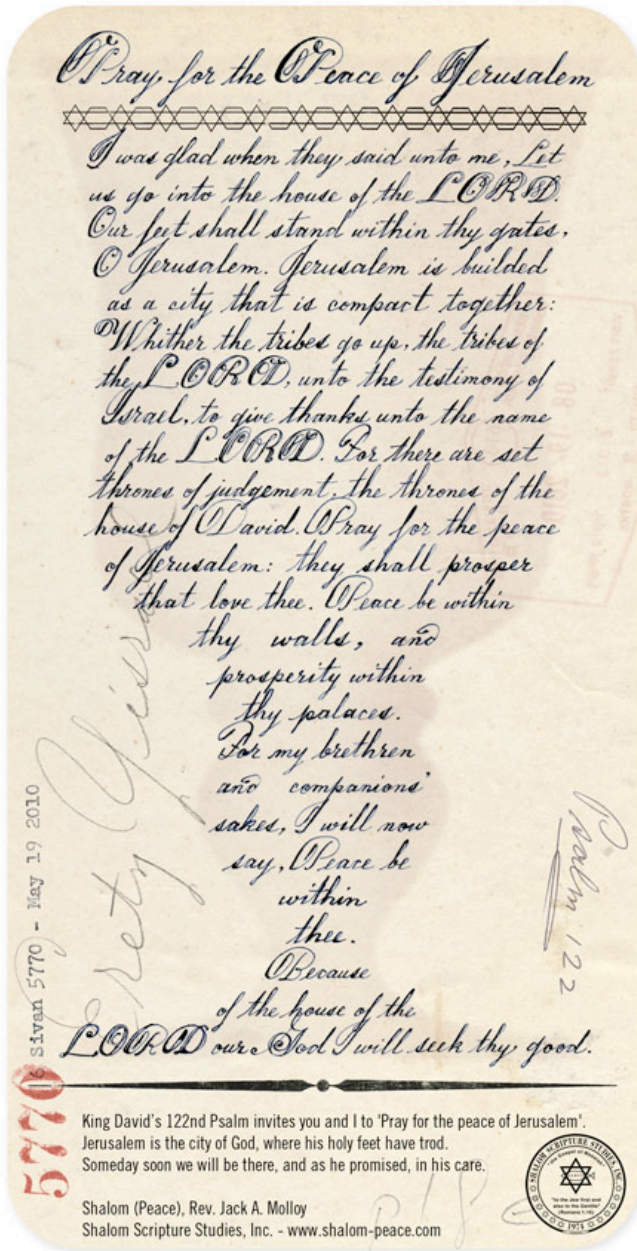 Pray for the Peace of Jerusalem
I was glad when they said unto me, Let
us go into the house of the LORD.
Our feet shall stand within thy gates,
O Jerusalem. Jerusalem is builded
as a city that is compact together:
Whither the tribes go up, the tribes of
the LORD, unto the testimony of
Israel, to give thanks unto the name
of the LORD. For there are set
thrones of judgement, the thrones of the
house of David. Pray for the peace
of Jerusalem: they shall prosper
that love thee. Peace be within
thy walls, and
prosperity within
thy palaces.
For my brethren
and companions'
sakes, I will now
say, Peace be
within
thee.
Because
of the house of the
LORD our God I will seek thy good.
Psalm 122
Eretz Yisrael
6 Sivan 5770 - May 19 2010
5770
King David's 122nd Psalm invites you and I to 'Pray for the peace of Jerusalem'.
Jerusalem is the city of God, where his holy feet have trod.
Someday soon we will be there, and as he promised, in his care.
Shalom (Peace), Rev. Jack A. Molloy
Shalom Scripture Studies, Inc. - www.shalom-peace.com
SHALOM SCRIPTURE STUDIES, INC.
"to the Jew first and
also to the Gentile"
(Romans 1:16)
1974